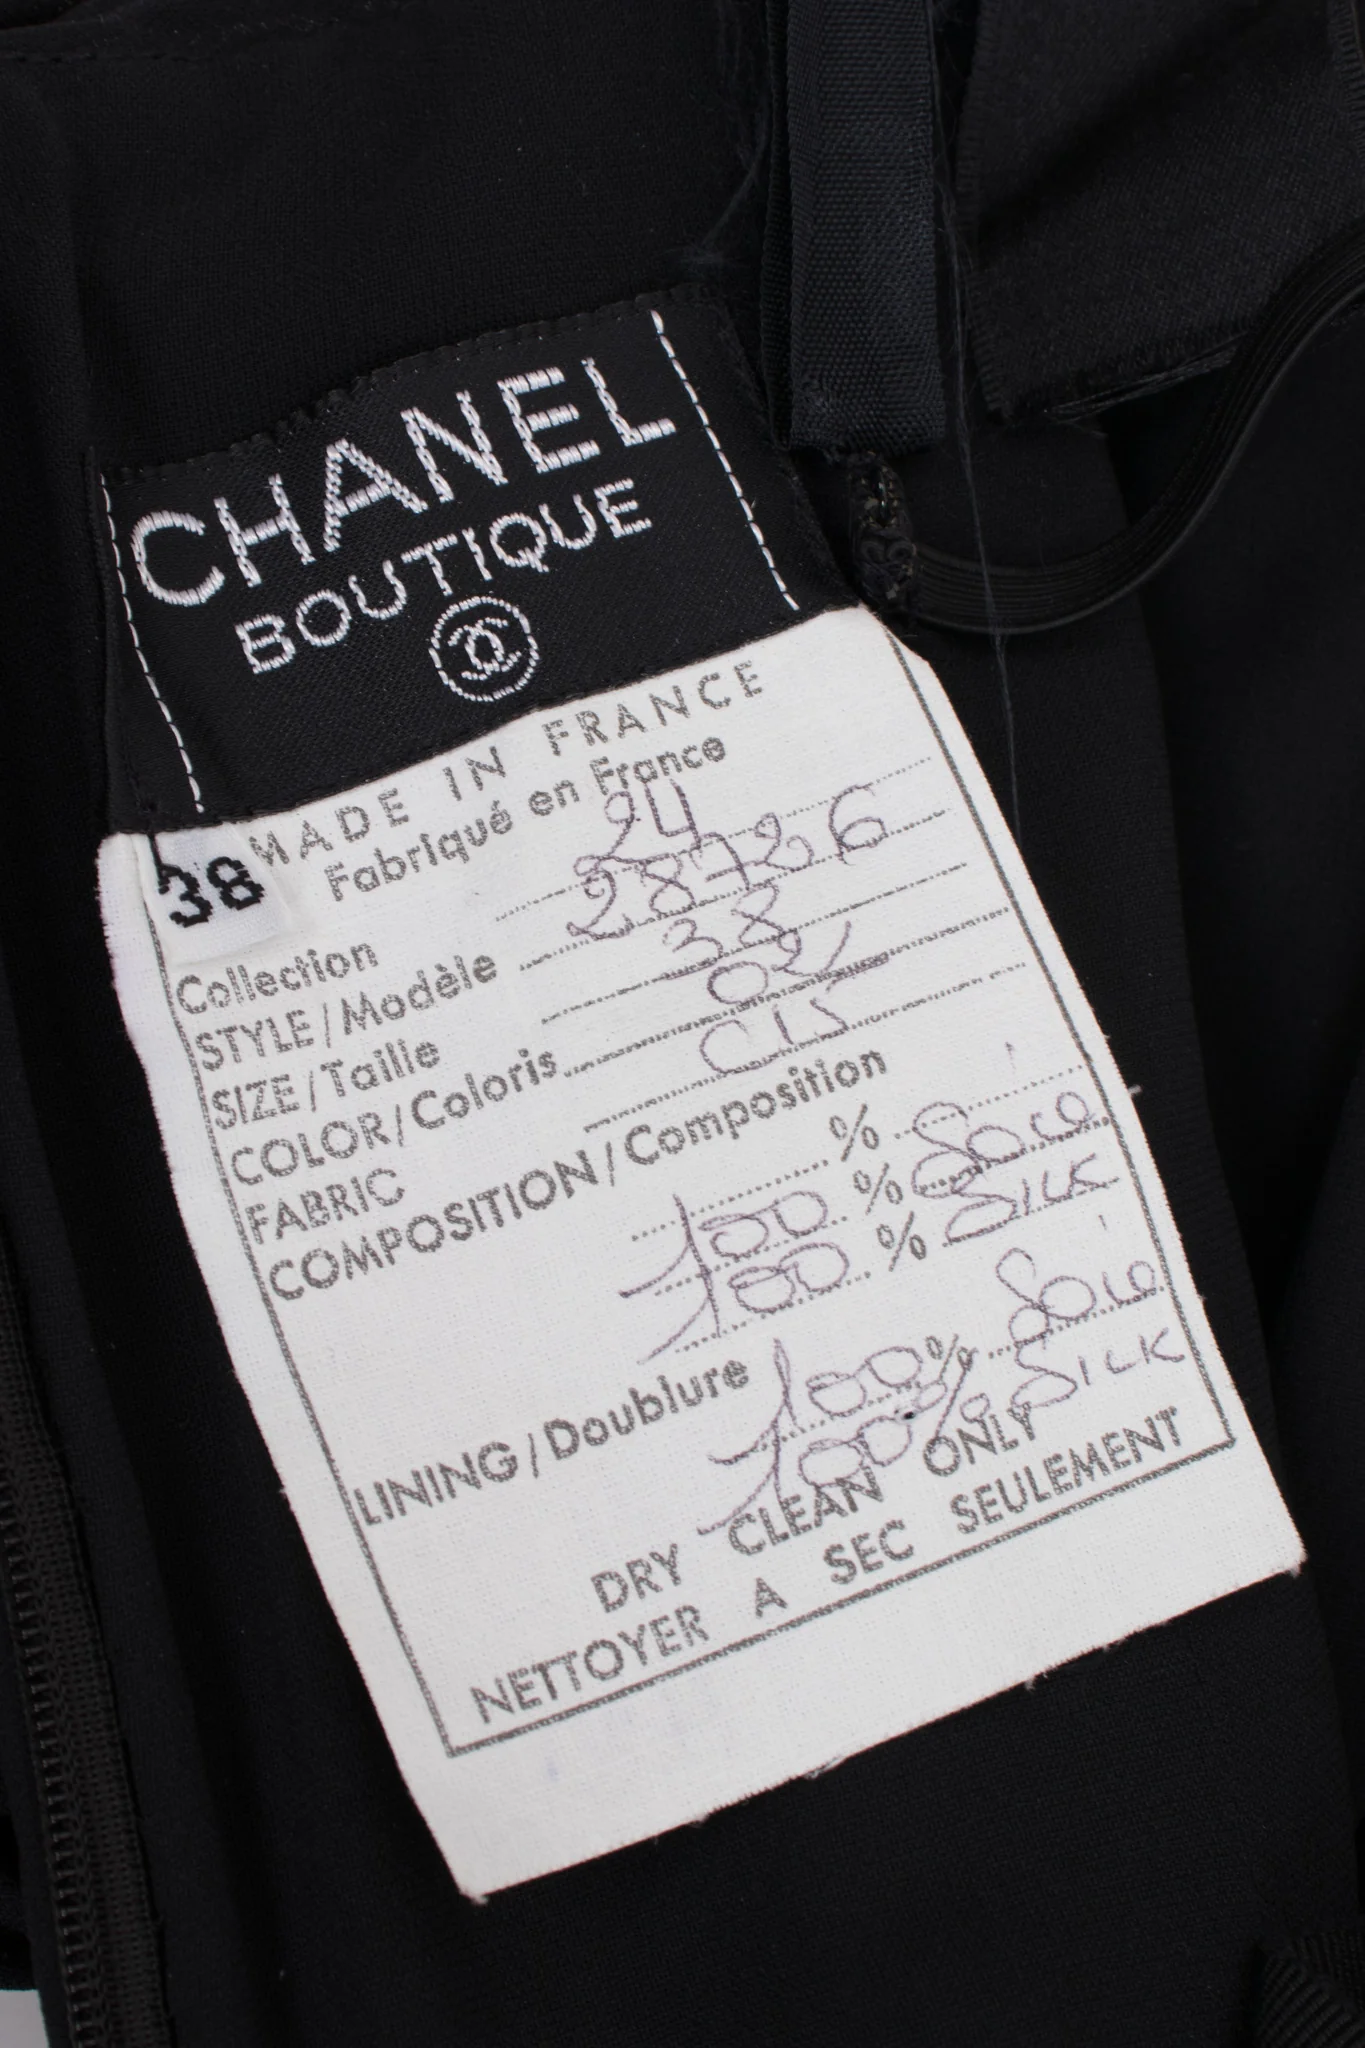 CHANEL
BOUTIQUE
MADE IN FRANCE
Fabriqué en France
38
Collection 24
STYLE/Modèle 28726
SIZE/Taille 38
COLOR/Coloris 02
FABRIC
COMPOSITION/Composition
%
100 % Soie
100 % SILK
LINING/Doublure 100% Soie
100% SILK
DRY CLEAN ONLY
NETTOYER A SEC SEULEMENT